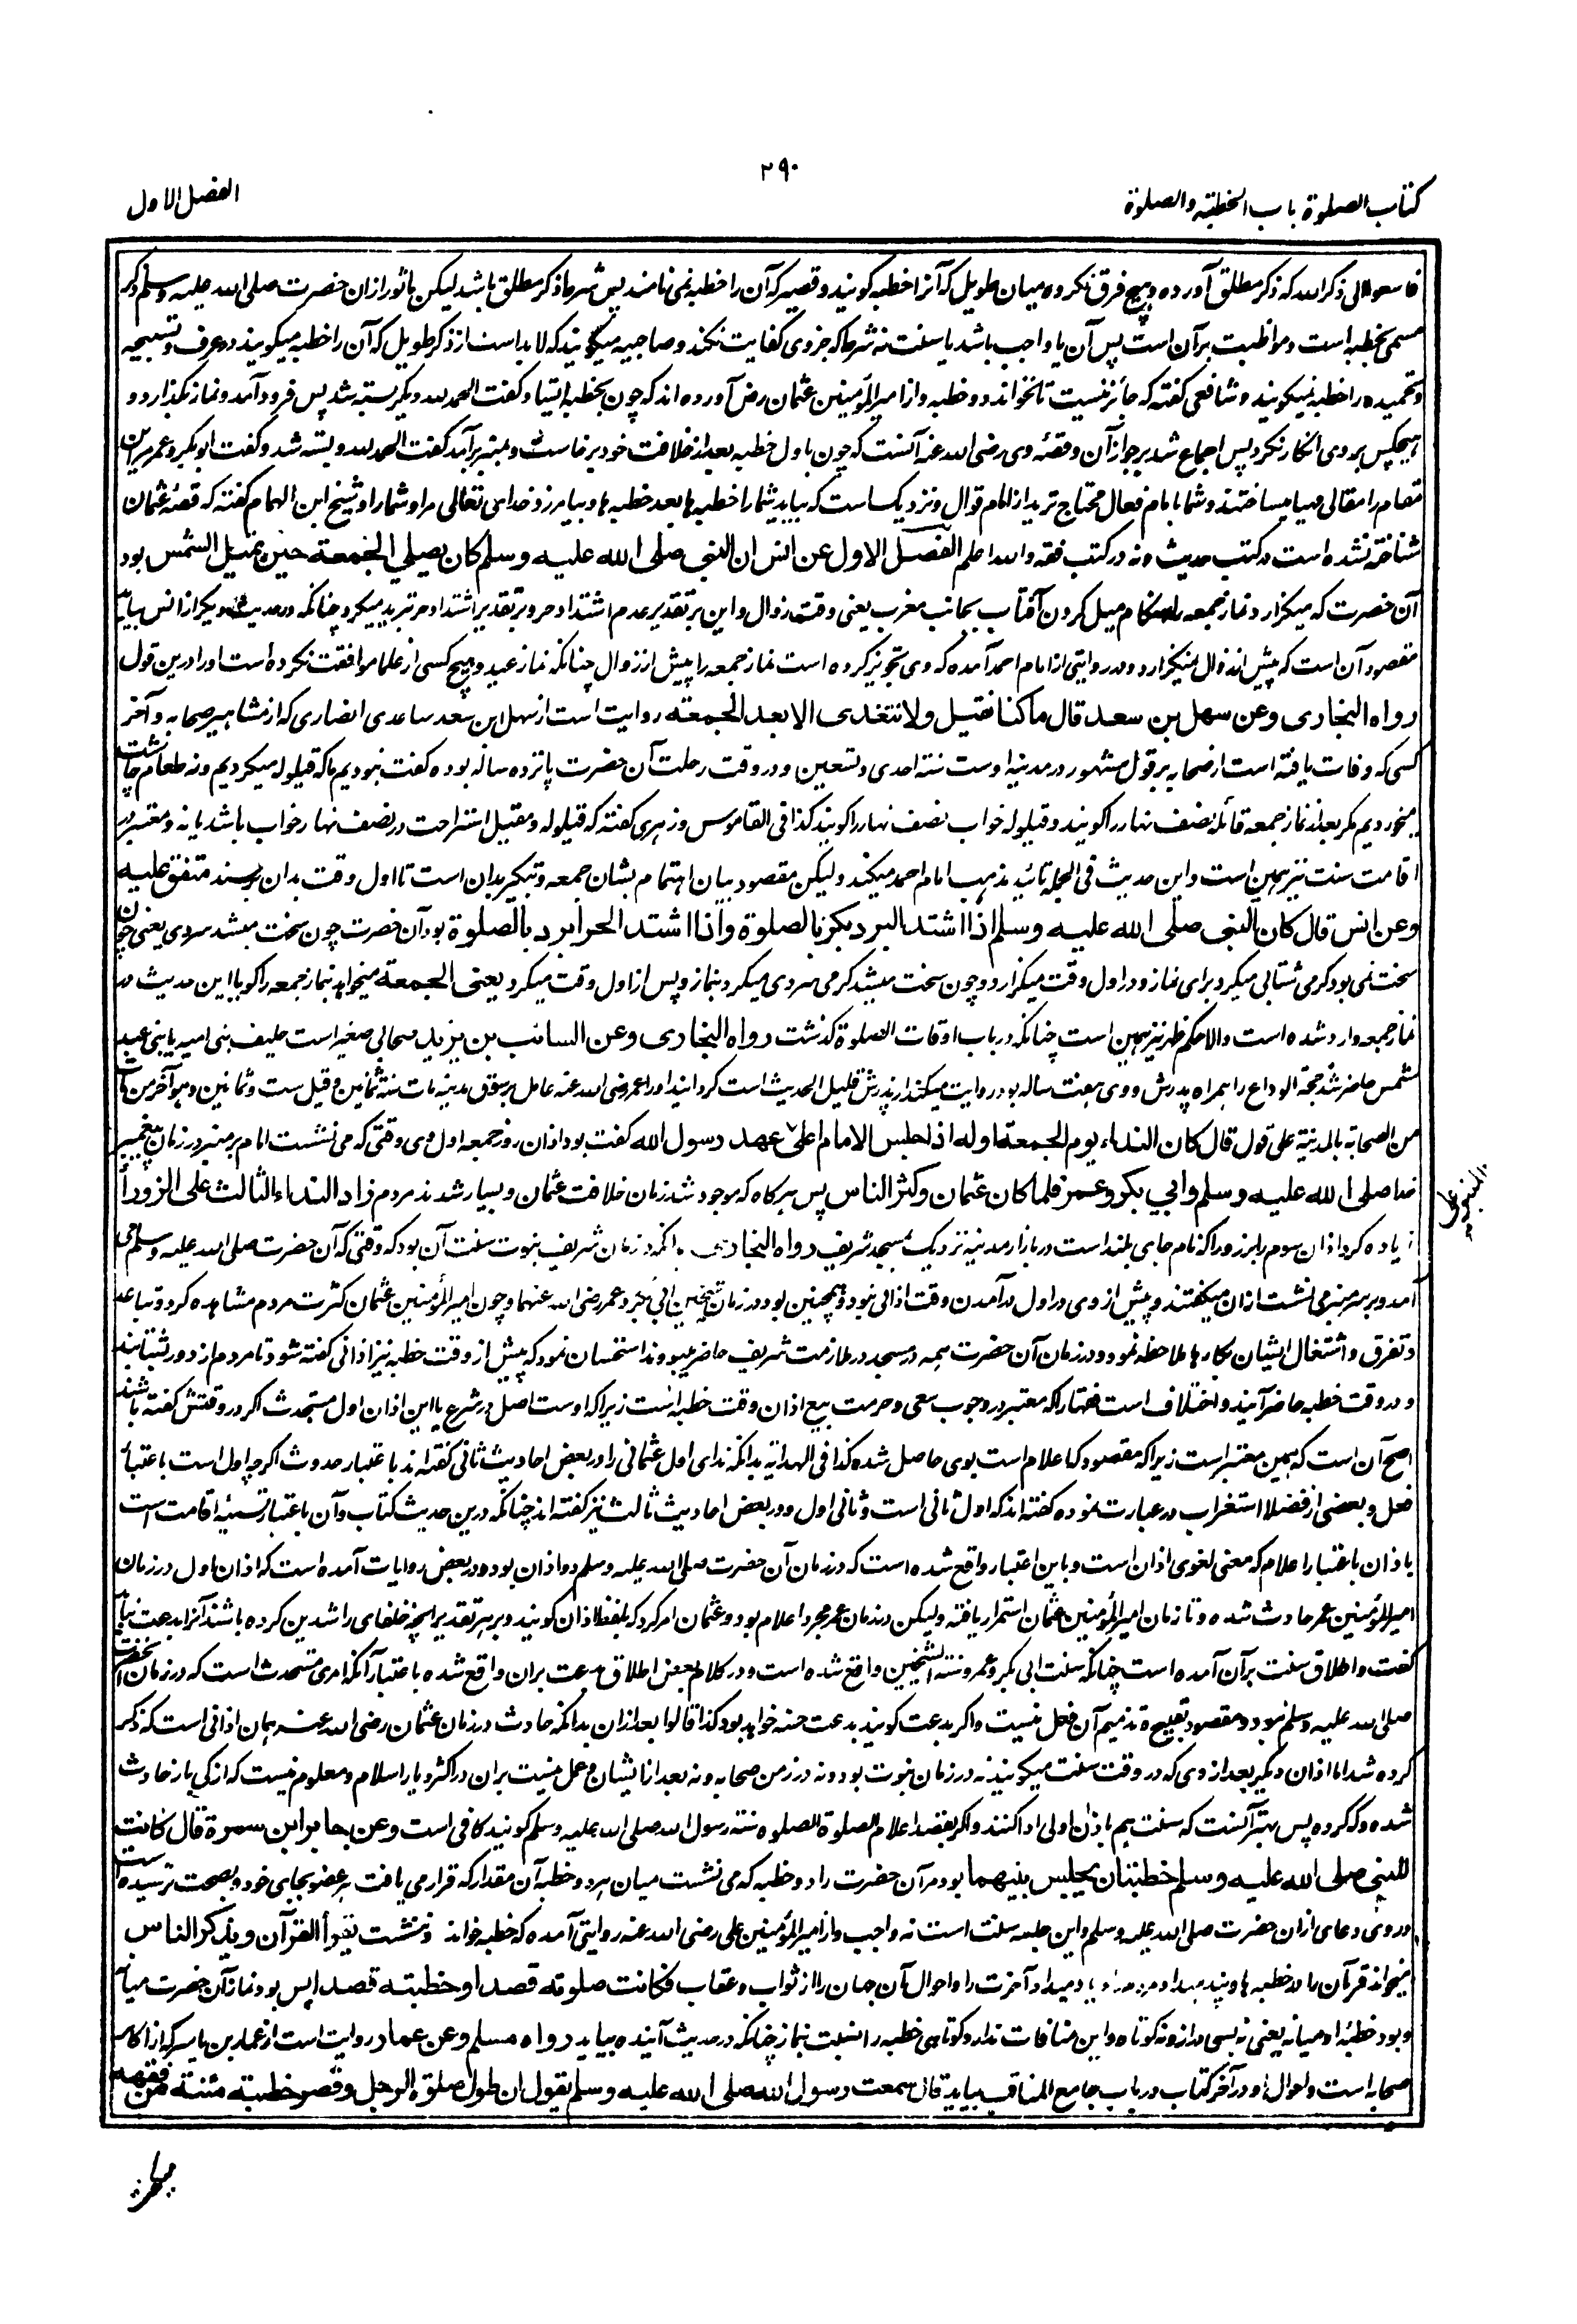 ۲۹۰
کتاب الصلوة باب الخطبة والصلوة
الفصل الاول
فاسعوا الی ذکر الله که ذکر مطلق آورده و هیچ فرق نکرده میان طویل که آنرا خطبه گویند و قصیر که آن را خطبه نمی نامند پس شرط ذکر مطلق باشد لیکن ماثور ازان حضرت صلی الله علیه وسلم ذکر
مسمی بخطبه است و مواظبت بر آن است پس آن یا واجب باشد یا سنت نه شرط که جزوی کفایت نکند و صاحبیه میگویند که لابد است از ذکر طویل که آن را خطبه میگویند در عرف و تسبیحه
و تحمیده را خطبه نمیگویند و شافعی گفته که جائز نیست تا نخواند دو خطبه و از امیر المؤمنین عثمان رض آورده اند که چون بخطبه ایستاد گفت الحمد لله و بر بسته شد پس فرود آمد و نماز بگذارد و
هیچکس بر وی انکار نکرد پس اجماع شد بر جواز آن و قصه وی رضی الله عنه آنست که چون باول خطبه بعد از خلافت خود برخاست و بمنبر برآمد گفت الحمد لله و بسته شد و گفت ابوبکر و عمر مر این
مقام را مقالی مهیا میساختند و شما بامام فعال محتاج ترید از امام قوال و نزدیک است که بیاید شما را خطبه ها بعد خطبه ها و بیامرزد خدای تعالی مرا و شما را و شیخ ابن الهمام گفته که قصه عثمان
شناخته نشده است در کتب حدیث و نه در کتب فقه والله اعلم الفصل الاول عن انس ان النبی صلی الله علیه وسلم کان یصلی الجمعة حین تمیل الشمس بود
آن حضرت که میگزارد نماز جمعه را هنگام میل کردن آفتاب بجانب مغرب یعنی وقت زوال و این بر تقدیر عدم اشتداد حر و بر تقدیر اشتداد حر تبرید میکرد چنانکه در حدیث دیگر از انس بیاید
مقصود آن است که پیش از زوال نمیگزارد و در روایتی از امام احمد آمده که وی تجویز کرده است نماز جمعه را پیش از زوال چنانکه نماز عید و هیچ کسی از علما موافقت نکرده است او را درین قول
رواه البخاری وعن سهل بن سعد قال ما کنا نقیل ولا نتغدی الا بعد الجمعة روایت است از سهل ابن سعد ساعدی انصاری که از مشاهیر صحابه و آخر
کسی که وفات یافته است از صحابه بر قول مشهور در مدینه اوست سنة احدی و تسعین و در وقت رحلت آن حضرت پانزده ساله بوده گفت نبودیم ما که قیلوله میکردیم و نه طعام چاشت
میخوردیم مگر بعد از نماز جمعه قائله نصف نهار را گویند و قیلوله خواب نصف نهار را گویند کذا فی القاموس و زهری گفته که قیلوله و مقیل استراحت در نصف نهار خواب باشد یا نه و معتبر در
اقامت سنت نیز همین است و این حدیث فی الجمله تائید مذهب امام احمد میکند ولیکن مقصود بیان اهتمام بشان جمعه و تبکیر بدان است تا اول وقت بدان برسند متفق علیه
وعن انس قال کان النبی صلی الله علیه وسلم اذا اشتد البرد بکر بالصلوة واذا اشتد الحر ابرد بالصلوة بود آن حضرت چون سخت میشد سردی یعنی چون
سخت نمی بود گرمی شتابی میکرد برای نماز و در اول وقت میگزارد و چون سخت میشد گرمی سردی میکرد بنماز و پس از اول وقت میکرد یعنی الجمعة میخواهد نماز جمعه را گویا این حدیث در
نماز جمعه وارد شده است والا حکم ظهر نیز همین است چنانکه در باب اوقات الصلوة گذشت رواه البخاری وعن السائب بن یزید صحابی صغیر است حلیف بنی امیه یا بنی عبد
شمس حاضر شد حجة الوداع را همراه پدرش و وی هفت ساله بود روایت میکند از پدرش قلیل الحدیث است گردانید او را عمر رضی الله عنه عامل بر سوق مدینه مات سنة ثمانین و قیل ست و ثمانین و هو آخر من مات
من الصحابة بالمدینة علی قول قال کان النداء یوم الجمعة اوله اذا جلس الامام علی عهد رسول الله گفت بود اذان روز جمعه اول وی وقتی که می نشست امام بر منبر در زمان پیغمبر
خدا صلی الله علیه وسلم وابی بکر وعمر فلما کان عثمان وکثر الناس پس هرگاه که موجود شد زمان خلافت عثمان و بسیار شدند مردم زاد النداء الثالث علی الزوراء
زیاده کرد اذان سوم را بر زورا که نام جای بلند است در بازار مدینه نزدیک مسجد شریف رواه البخاری بدانکه در زمان شریف نبوت سنت آن بود که وقتی که آن حضرت صلی الله علیه وسلم می
آمد و بر سر منبر می نشست اذان میگفتند و پیش از وی در اول درآمدن وقت اذانی نبود و همچنین بود در زمان شیخین ابی بکر و عمر رضی الله عنهما و چون امیر المؤمنین عثمان کثرت مردم مشاهده کرد و تباعد
و تفرق و اشتغال ایشان بکارها ملاحظه نمود و در زمان آن حضرت همه در مسجد در ملازمت شریف حاضر میبودند استحسان نمود که پیش از وقت خطبه نیز اذانی گفته شود تا مردم از دور شتابند
و در وقت خطبه حاضر آیند و اختلاف است فقها را که معتبر در وجوب سعی و حرمت بیع اذان وقت خطبه است زیرا که اوست اصل در شرع یا این اذان اول مستحدث اگر در وقتش گفته باشند
اصح آن است که همین معتبر است زیرا که مقصود که اعلام است بوی حاصل شده کذا فی الهدایة بدانکه ندای اول عثمانی را در بعض احادیث ثانی گفته اند باعتبار حدوث اگرچه اول است باعتبار
فعل و بعضی از فضلا استغراب در عبارت نموده گفته اند که اول ثانی است و ثانی اول و در بعض احادیث ثالث نیز گفته اند چنانکه درین حدیث کتاب و آن باعتبار تسمیه اقامت است
باذان باعتبار اعلام که معنی لغوی اذان است و باین اعتبار واقع شده است که در زمان آن حضرت صلی الله علیه وسلم دو اذان بوده و در بعض روایات آمده است که اذان اول در زمان
امیر المؤمنین عمر حادث شده و تا زمان امیر المؤمنین عثمان استمرار یافته ولیکن در زمان عمر مجرد اعلام بود و عثمان امر کرد که بلفظ اذان گویند و بر هر تقدیر آنچه خلفای راشدین کرده باشند آنرا بدعت نباید
گفت و اطلاق سنت بر آن آمده است چنانکه سنت ابی بکر و عمر و سنة الشیخین واقع شده است و در کلام بعض اطلاق بدعت بران واقع شده باعتبار آنکه امری مستحدث است که در زمان آنحضرت
صلی الله علیه وسلم نبود و مقصود تقبیح و تذمیم آن فعل نیست و اگر بدعت گویند بدعت حسنه خواهد بود کذا قالوا بعد ازان بدانکه حادث در زمان عثمان رضی الله عنه همان اذانی است که ذکر
کرده شد اما اذان دیگر بعد از وی که در وقت سنت میگویند نه در زمان نبوت بود و نه در زمن صحابه و نه بعد از ایشان و عمل نیست بران در اکثر دیار اسلام و معلوم نیست که از کی باز حادث
شده و که کرده پس بهتر آنست که سنت هم باذان اولی ادا کنند و اگر بقصد اعلام الصلوة الصلوة سنة رسول الله صلی الله علیه وسلم گویند کافی است وعن جابر ابن سمرة قال کانت
للنبی صلی الله علیه وسلم خطبتان یجلس بینهما بود مر آن حضرت را دو خطبه که می نشست میان هر دو خطبه آن مقدار که قرار می یافت هر عضو بجای خود و بصحت نرسیده است
در وی دعای ازان حضرت صلی الله علیه وسلم و این جلسه سنت است نه واجب و از امیر المؤمنین علی رضی الله عنه روایتی آمده که خطبه خواند و ننشست یقرأ القرآن ویذکر الناس
میخواند قرآن را در خطبه ها و پند میداد مردم را و یاد میداد آخرت را و احوال آن جهان را از ثواب و عقاب فکانت صلوته قصدا وخطبته قصدا پس بود نماز آن حضرت میانه
و بود خطبه او میانه یعنی نه بسی دراز و نه کوتاه و این منافات ندارد و کوتاهی خطبه را نسبت بنماز چنانکه در حدیث آینده بیاید رواه مسلم وعن عمار روایت است از عمار بن یاسر که از اکابر
صحابه است و احوال او در آخر کتاب در باب جامع المناقب بیاید قال سمعت رسول الله صلی الله علیه وسلم یقول ان طول صلوة الرجل وقصر خطبته مئنة من فقهه